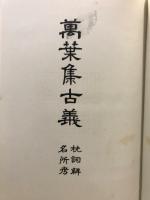 萬葉集古義
枕詞解
名所考